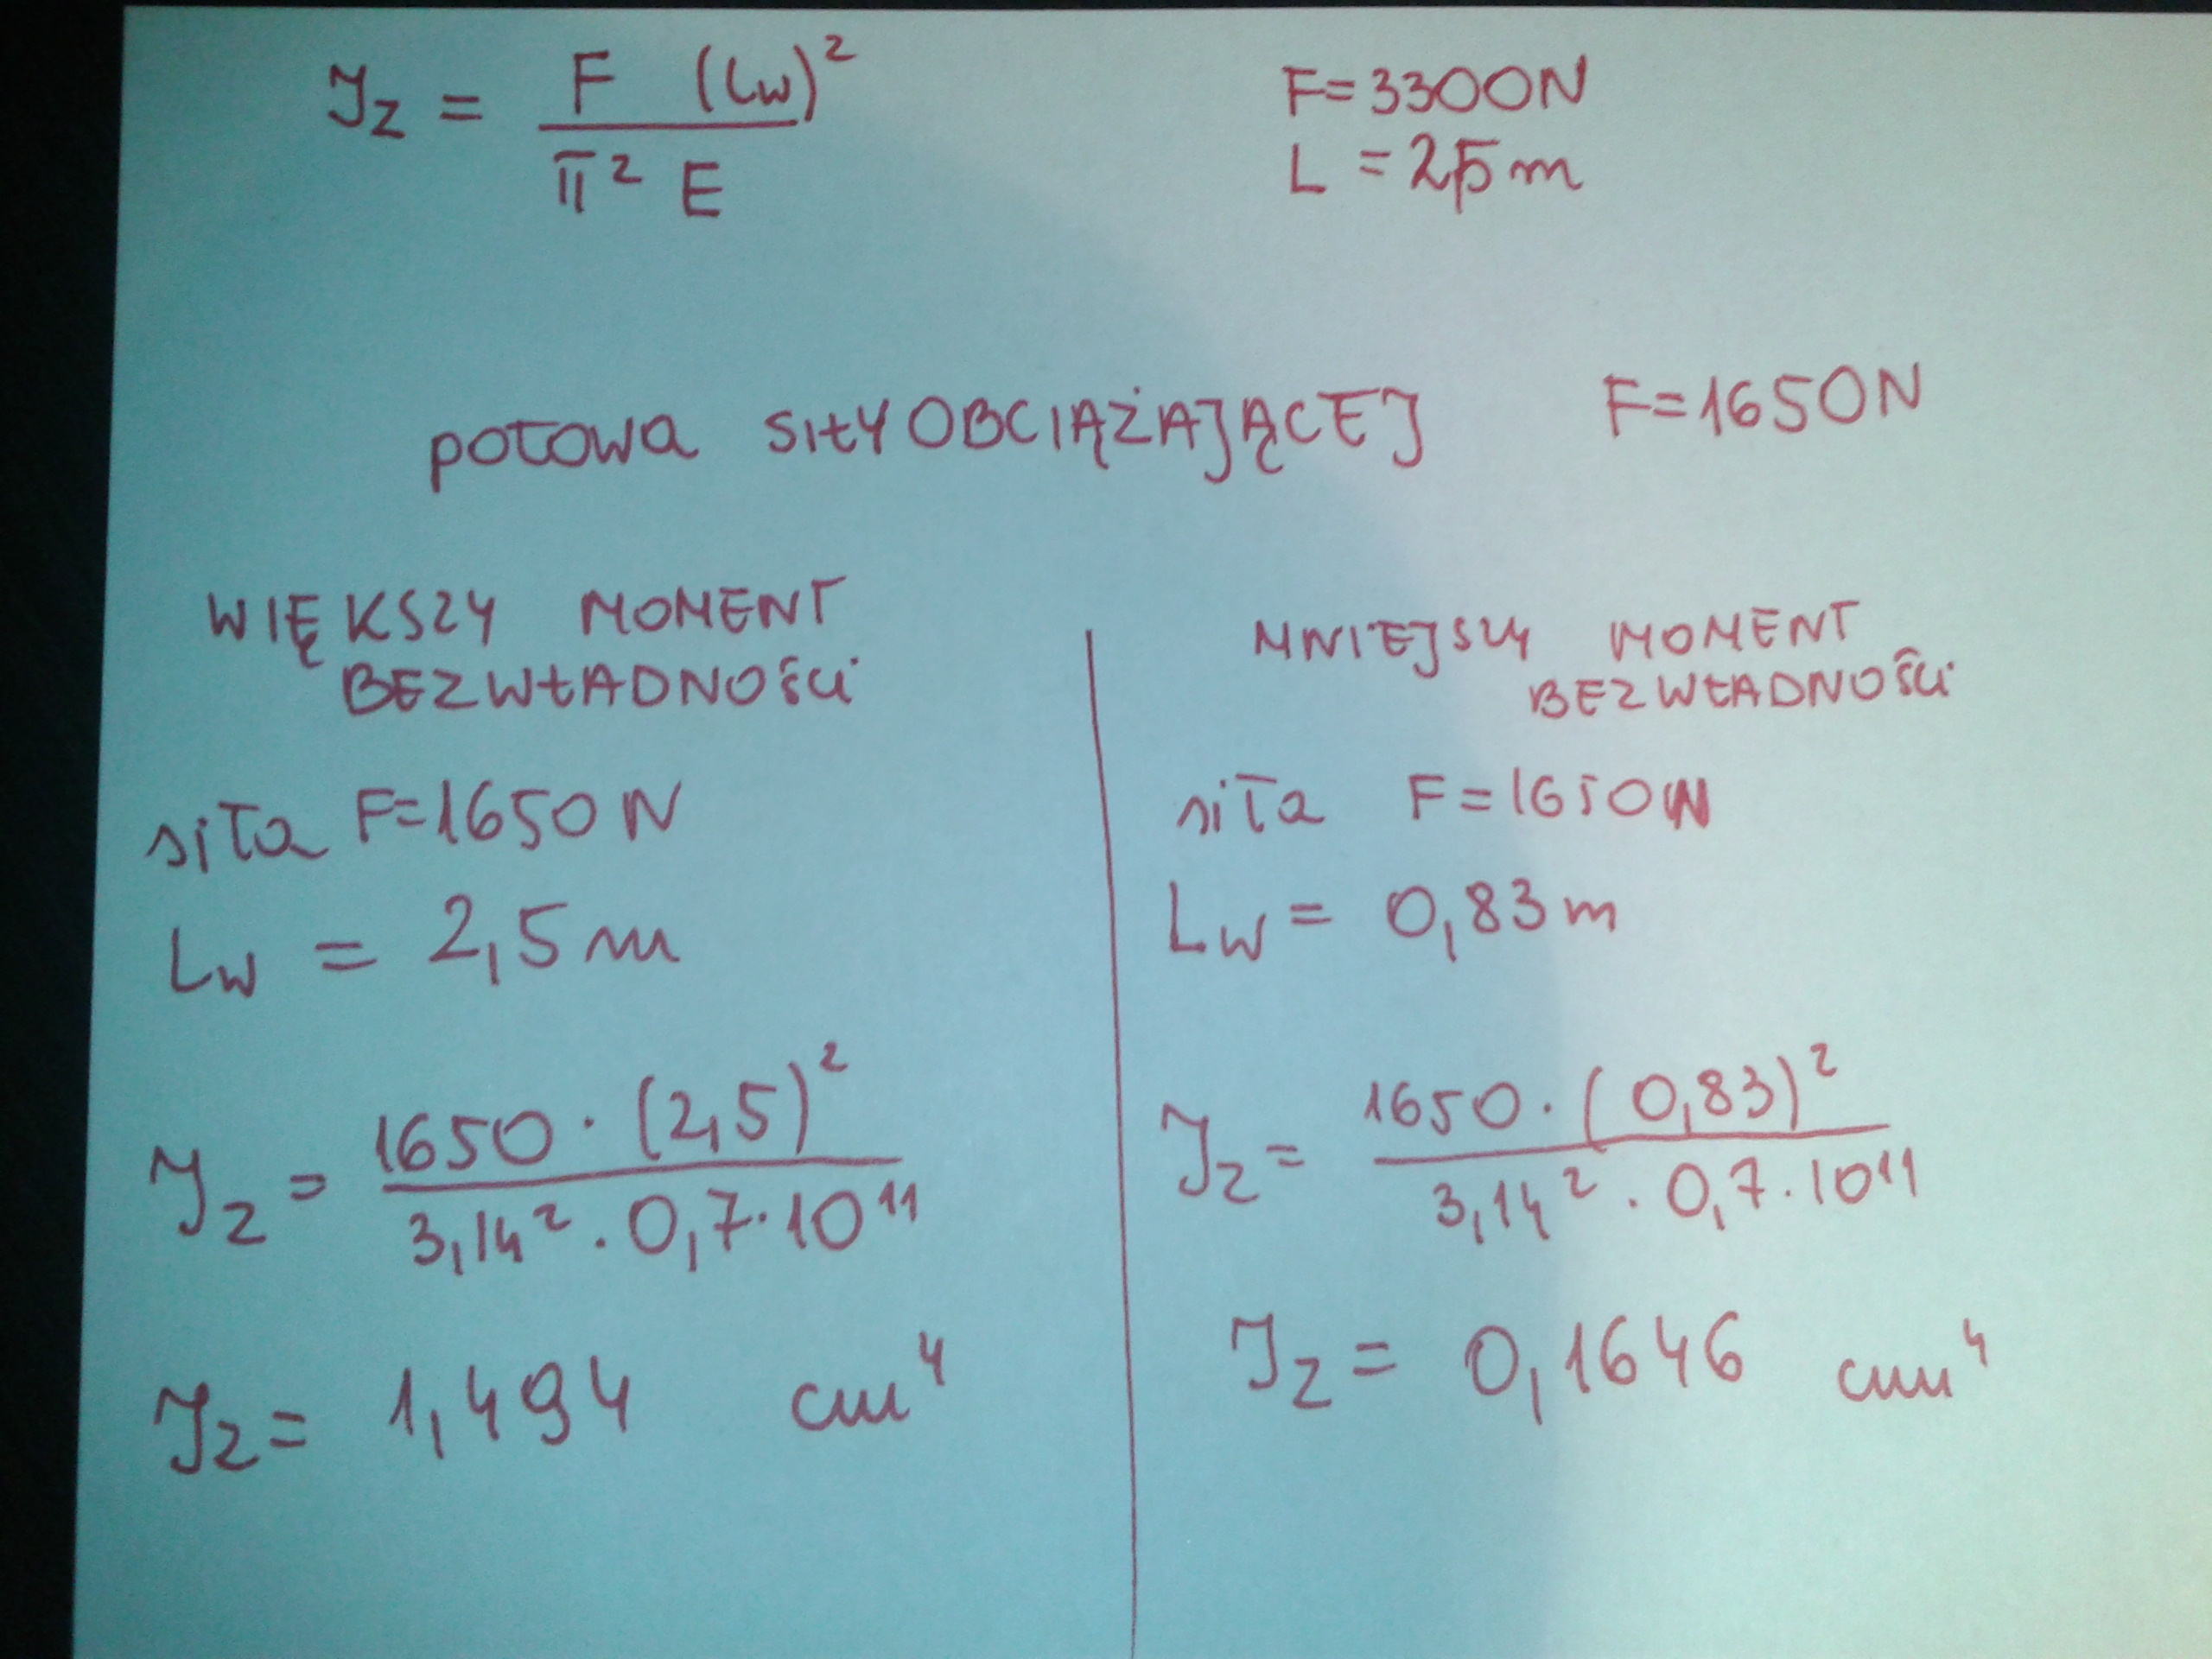 Jz = F (Lw)² / π² E
F=3300N
L = 2,5m
połowa SIŁY OBCIĄŻAJĄCEJ F=1650N
WIĘKSZY MOMENT
BEZWŁADNOŚCI
siła F=1650N
Lw = 2,5m
Jz = 1650 · (2,5)² / 3,14² · 0,7 · 10¹¹
Jz = 1,494 cm⁴
MNIEJSZY MOMENT
BEZWŁADNOŚCI
siła F=1650N
Lw = 0,83m
Jz = 1650 · (0,83)² / 3,14² · 0,7 · 10¹¹
Jz = 0,1646 cm⁴